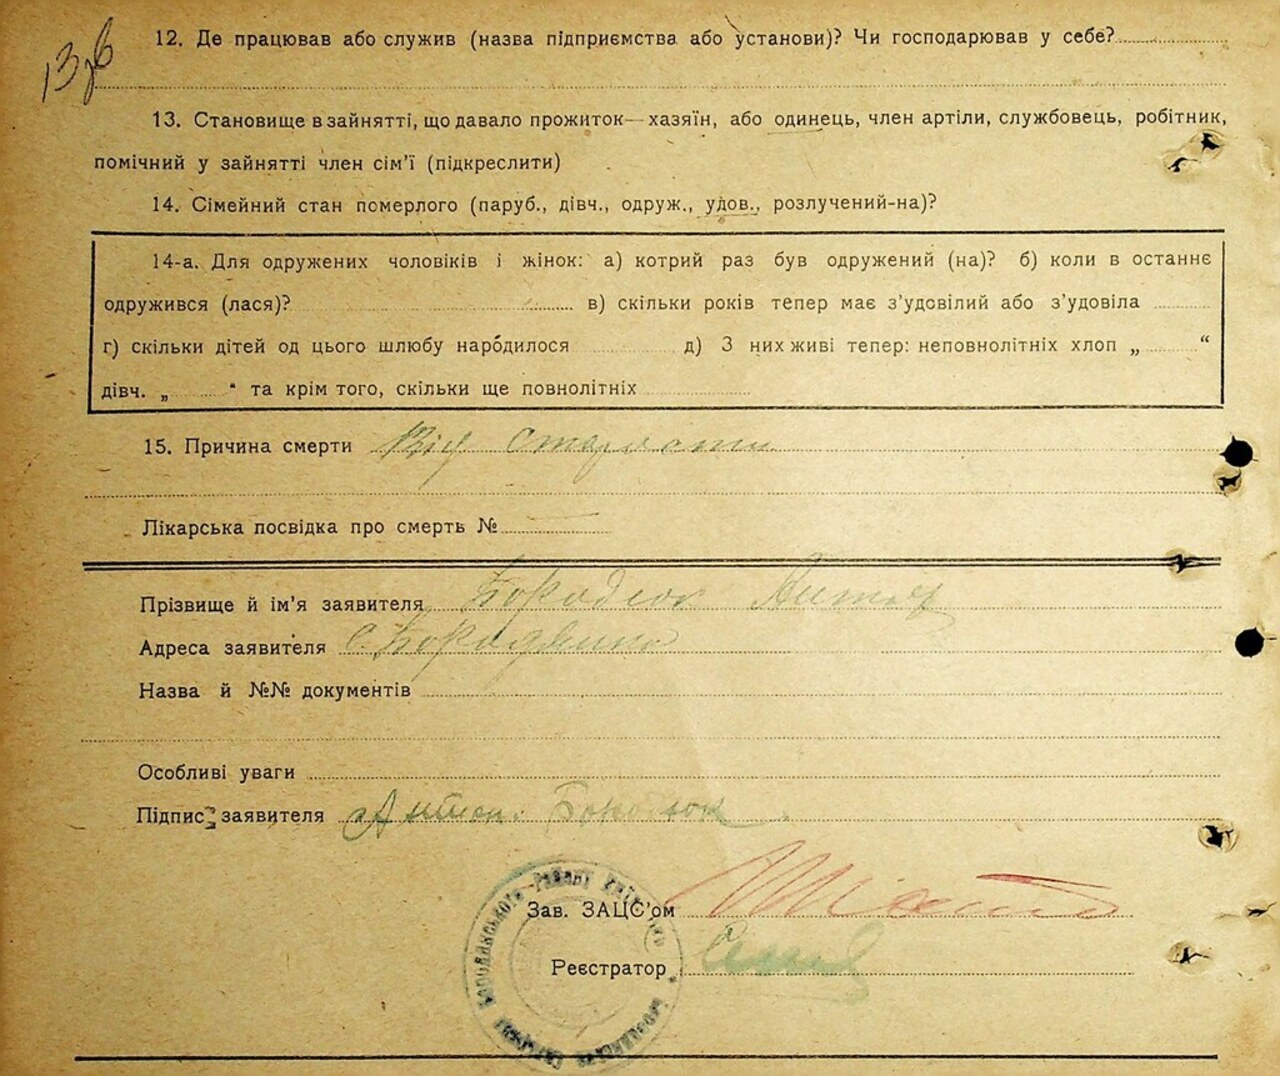 12. Де працював або служив (назва підприємства або установи)? Чи господарював у себе?
13. Становище в зайнятті, що давало прожиток—хазяїн, або одинець, член артіли, службовець, робітник,
помічний у зайнятті член сім'ї (підкреслити)
14. Сімейний стан померлого (паруб., дівч., одруж., удов., розлучений-на)?
14-а. Для одружених чоловіків і жінок: а) котрий раз був одружений (на)? б) коли в останнє
одружився (лася)? в) скільки років тепер має з'удовілий або з'удовіла
г) скільки дітей од цього шлюбу народилося д) З них живі тепер: неповнолітніх хлоп „ “
дівч. „ “ та крім того, скільки ще повнолітніх
15. Причина смерти Від старости
Лікарська посвідка про смерть №
Прізвище й ім'я заявителя Бородюк Антон
Адреса заявителя С. Бородянка
Назва й №№ документів
Особливі уваги
Підпис заявителя Антон Бородюк
Зав. ЗАЦС'ом
Реєстратор